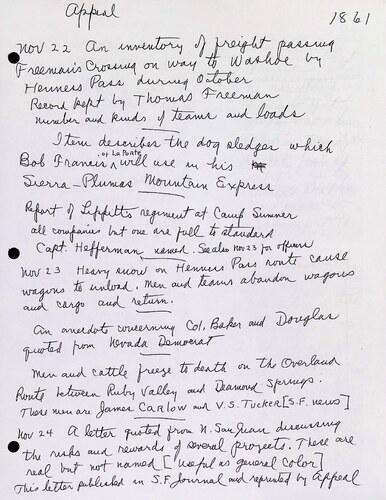 Appeal
1861
Nov 22 An inventory of freight passing
Freeman's Crossing on way to Washoe by
Henness Pass during October
Record kept by Thomas Freeman
number and kinds of teams and loads
Item describes the dog sledges which
Bob Francis of La Porte will use in his
Sierra-Plumas Mountain Express
Report of Lippitts regiment at Camp Sumner
all companies but one are full to standard
Capt. Hefferman named. See also Nov 23 for officers
Nov 23 Heavy snow on Henness Pass route cause
wagons to unload. Men and teams abandon wagons
and cargo and return.
An anecdote concerning Col. Baker and Douglas
quoted from Nevada Democrat
Men and cattle freeze to death on the Overland
Route between Ruby Valley and Deamond Springs.
These men are James CARLOW and V.S. TUCKER [S.F. news]
Nov 24 A letter quoted from N. San Juan discussing
the risks and rewards of several projects. These are
real but not named [useful as general color]
This letter published in S.F. Journal and reprinted by Appeal